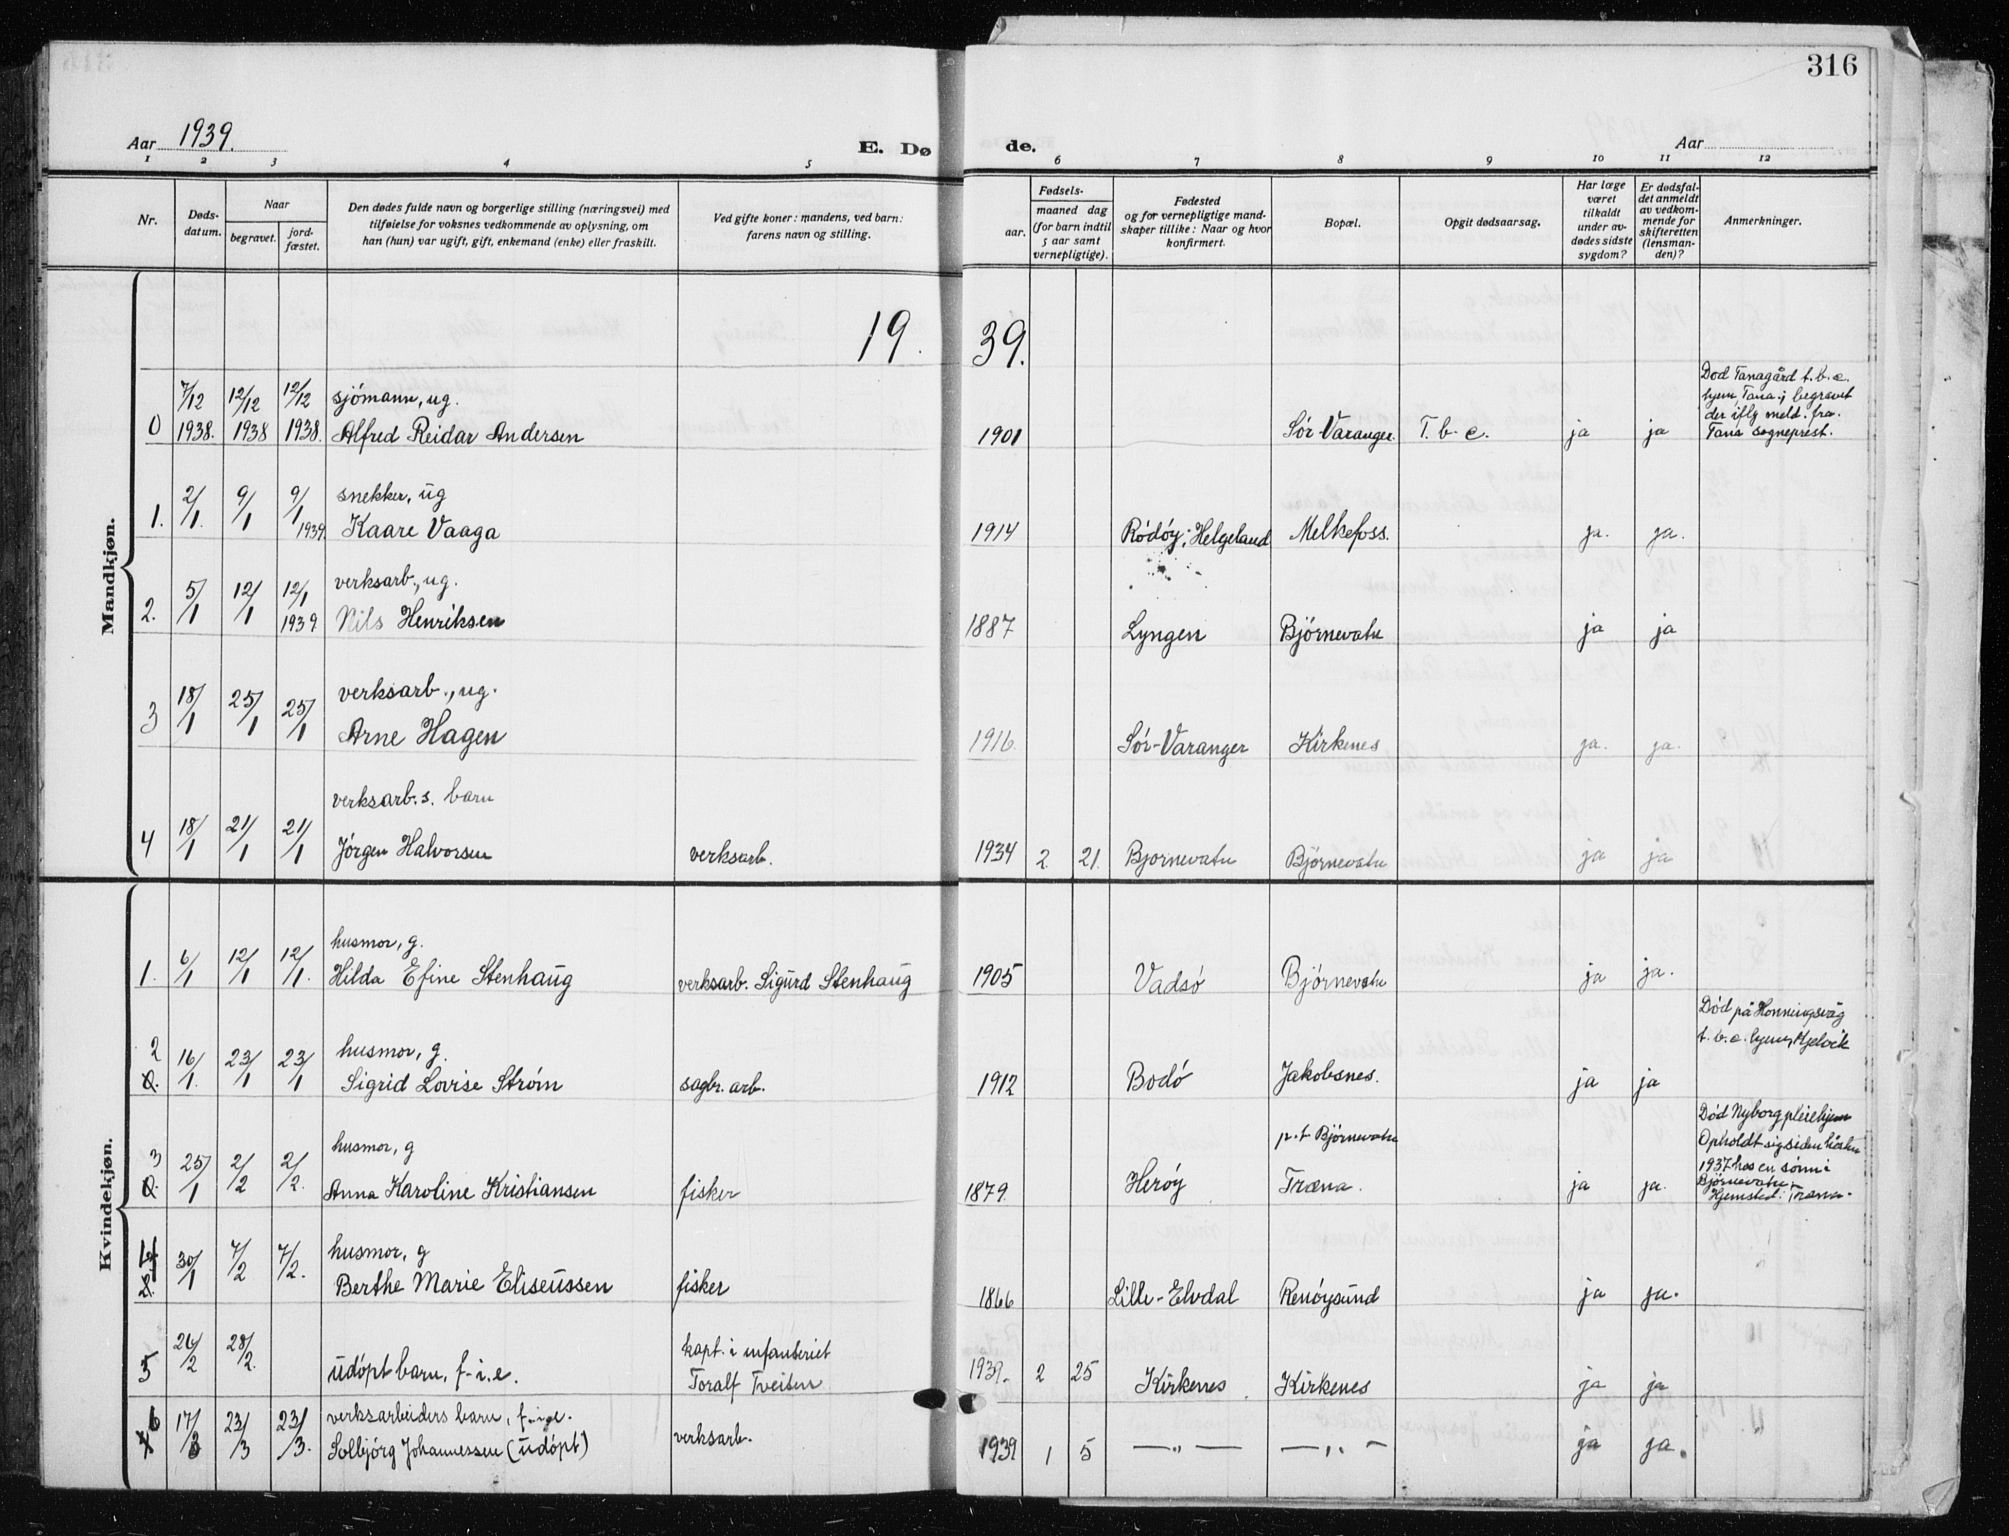 316
Aar 1939.
E. Døde.
Aar
1 2 3 4 5 6 7 8 9 10 11 12
Nr.
Døds-
datum.
Naar
begravet.
jord-
fæstet.
Den dødes fulde navn og borgerlige stilling (næringsvei) med
tilføielse for voksnes vedkommende av oplysning, om
han (hun) var ugift, gift, enkemand (enke) eller fraskilt.
Ved gifte koner: mandens, ved barn:
farens navn og stilling.
Fødsels-
aar.
maaned dag
(for barn indtil
5 aar samt
vernepligtige).
Fødested
og for vernepligtige mand-
skaper tillike: Naar og hvor
konfirmert.
Bopæl.
Opgit dødsaarsag.
Har læge
været
tilkaldt
under av-
dødes sidste
sygdom?
Er dødsfal-
det anmeldt
av vedkom-
mende for
skifteretten
(lensman-
den)?
Anmerkninger.
Mandkjøn.
19. 39.
0 7/12 1938. 12/12 1938 12/12 1938.
sjómann, ug.
Alfred Reidar Andersen
1901 Sór-Varanger. T.b.c. ja ja
Dod Tanagård t.b.c.
hjem, Tana; begravet
der iflg meld. fra.
Tana sogneprest.
1. 2/1. 9/1 9/1 1939.
snekker, ug
Kaare Vaaga
1914 Ródóy, Helgeland Melkefoss. ja. ja.
2. 5/1 12/1 12/1 1939
verksarb., ug.
Nils Henriksen
1887 Lyngen Bjórnevatn ja ja
3 18/1 25/1 25/1
verksarb., ug.
Arne Hagen
1916. Sór-Varanger Kirkenes ja. ja.
4 18/1 21/1 21/1
verksarb.s. barn
Jórgen Halvorsen verksarb.
1934 2 21. Bjornevatn Bjórnevatn ja ja
Kvindekjøn.
1. 6/1 12/1 12/1.
husmor, g.
Hilda Efine Stenhaug verksarb. Sigurd Stenhaug
1905 Vadsó Bjórnevatn ja ja.
2 16/1. 23/1 23/1
husmor, g.
Sigrid Lovise Stróm sagbr. arb.
1912 Bodó Jakobsnes. ja ja
Dód på Honningsvåg
t.b.c. hjem,
3 25/1 2/2 2/2.
husmor, g
Anna Karoline Kristiansen fisker
1879. Heróy p.t Bjórnevatn
Træna. ja ja.
Dód Nyborg pleiehjem
Opholdt sig siden hósten
1937 hos en sónn i
Bjórnevatn.
Hjemsted: Træna.
4 30/1 7/2 7/2.
husmor, g
Berthe Marie Eliseussen fisker
1866 Lille-Elvdal Renóysund ja ja.
5 26/2 28/2.
udópt barn, f.i.e.
kapt. i infanteriet
Toralf Tveiten
1939. 2 25 Kirkenes. Kirkenes ja ja
6 17/3 23/3 23/3.
verksarbeiders barn,
Solbjórg Johannessen (udópt) verksarb.
1939 1 5 —„— —„— ja ja.